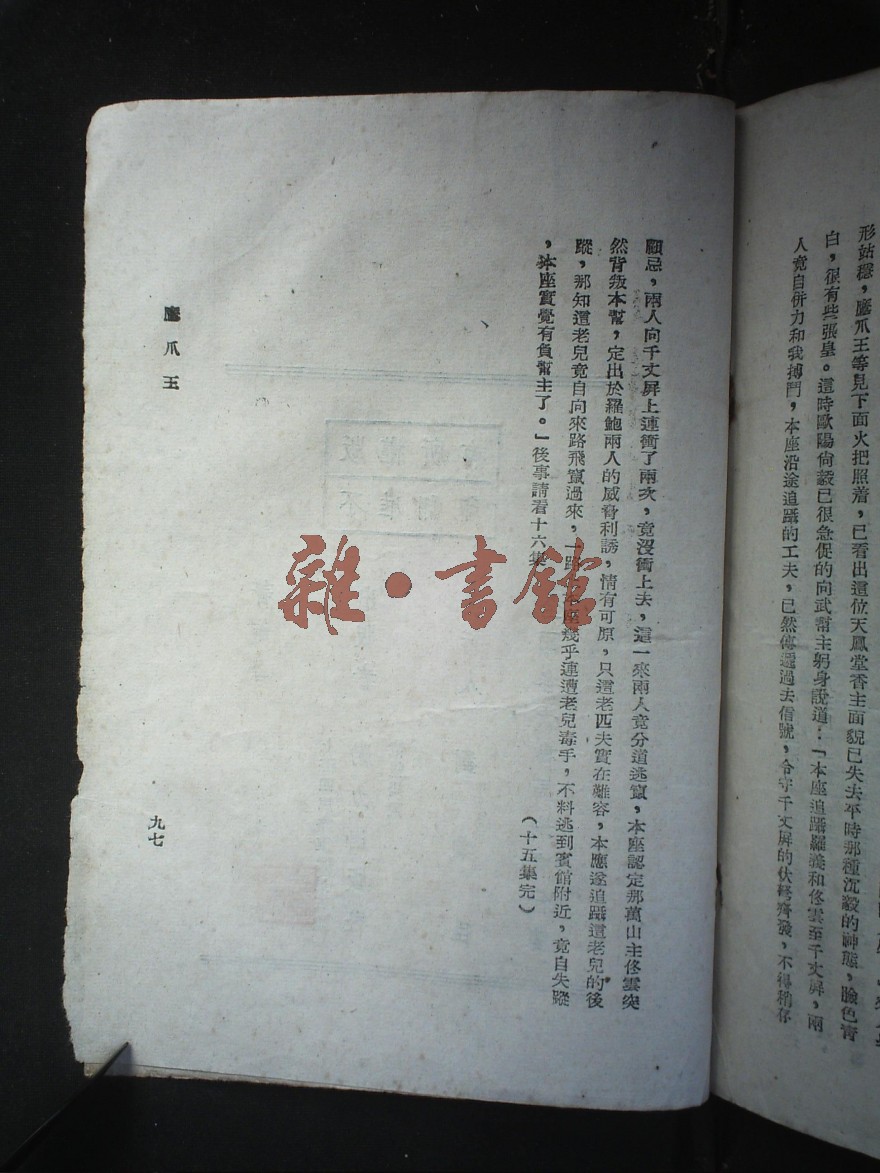 形姑穩，鷹爪王等見下面火把照着，已看出這位天鳳堂香主面貌已失去平時那種沉毅的神態，臉色青
白，很有些張皇。這時歐陽尚毅已很急促的向武幫主躬身說道：「本座追躡羅義和佟雲至千丈屏，兩
人竟自併力和我搏鬥，本座沿途追躡的工夫，已然傳遞過去信號，令守千丈屏的伏弩齊發，不得稍存
顧忌，兩人向千丈屏上連衝了兩次，竟沒衝上去，這一來兩人竟分道逃竄，本座認定那萬山主佟雲突
然背叛本幫，定出於羅鮑兩人的威脅利誘，情有可原，只這老匹夫實在難容，本應遂追躡這老兒的後
蹤，那知道老兒竟自向來路飛竄過來，一路 座幾乎連遭老兒毒手，不料逃到賓館附近，竟自失蹤
，本座實覺有負幫主了。」後事請看十六集
（十五集完）
鷹爪王
九七
雜·書館